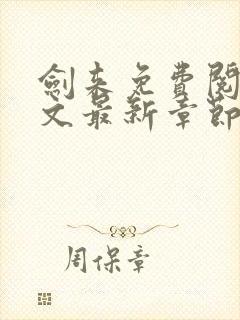 劍来免費閱
文最新章節
周保章